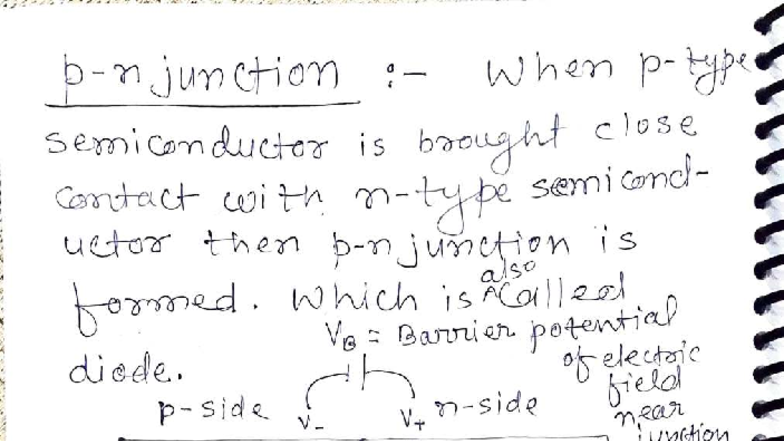 p-n junction :- When p-type
semiconductor is brought close
contact with n-type semicond-
uctor then p-n junction is
formed. Which is also called
diode.
V_B = Barrier potential
of electric
field
near
junction
p-side V- V+ n-side